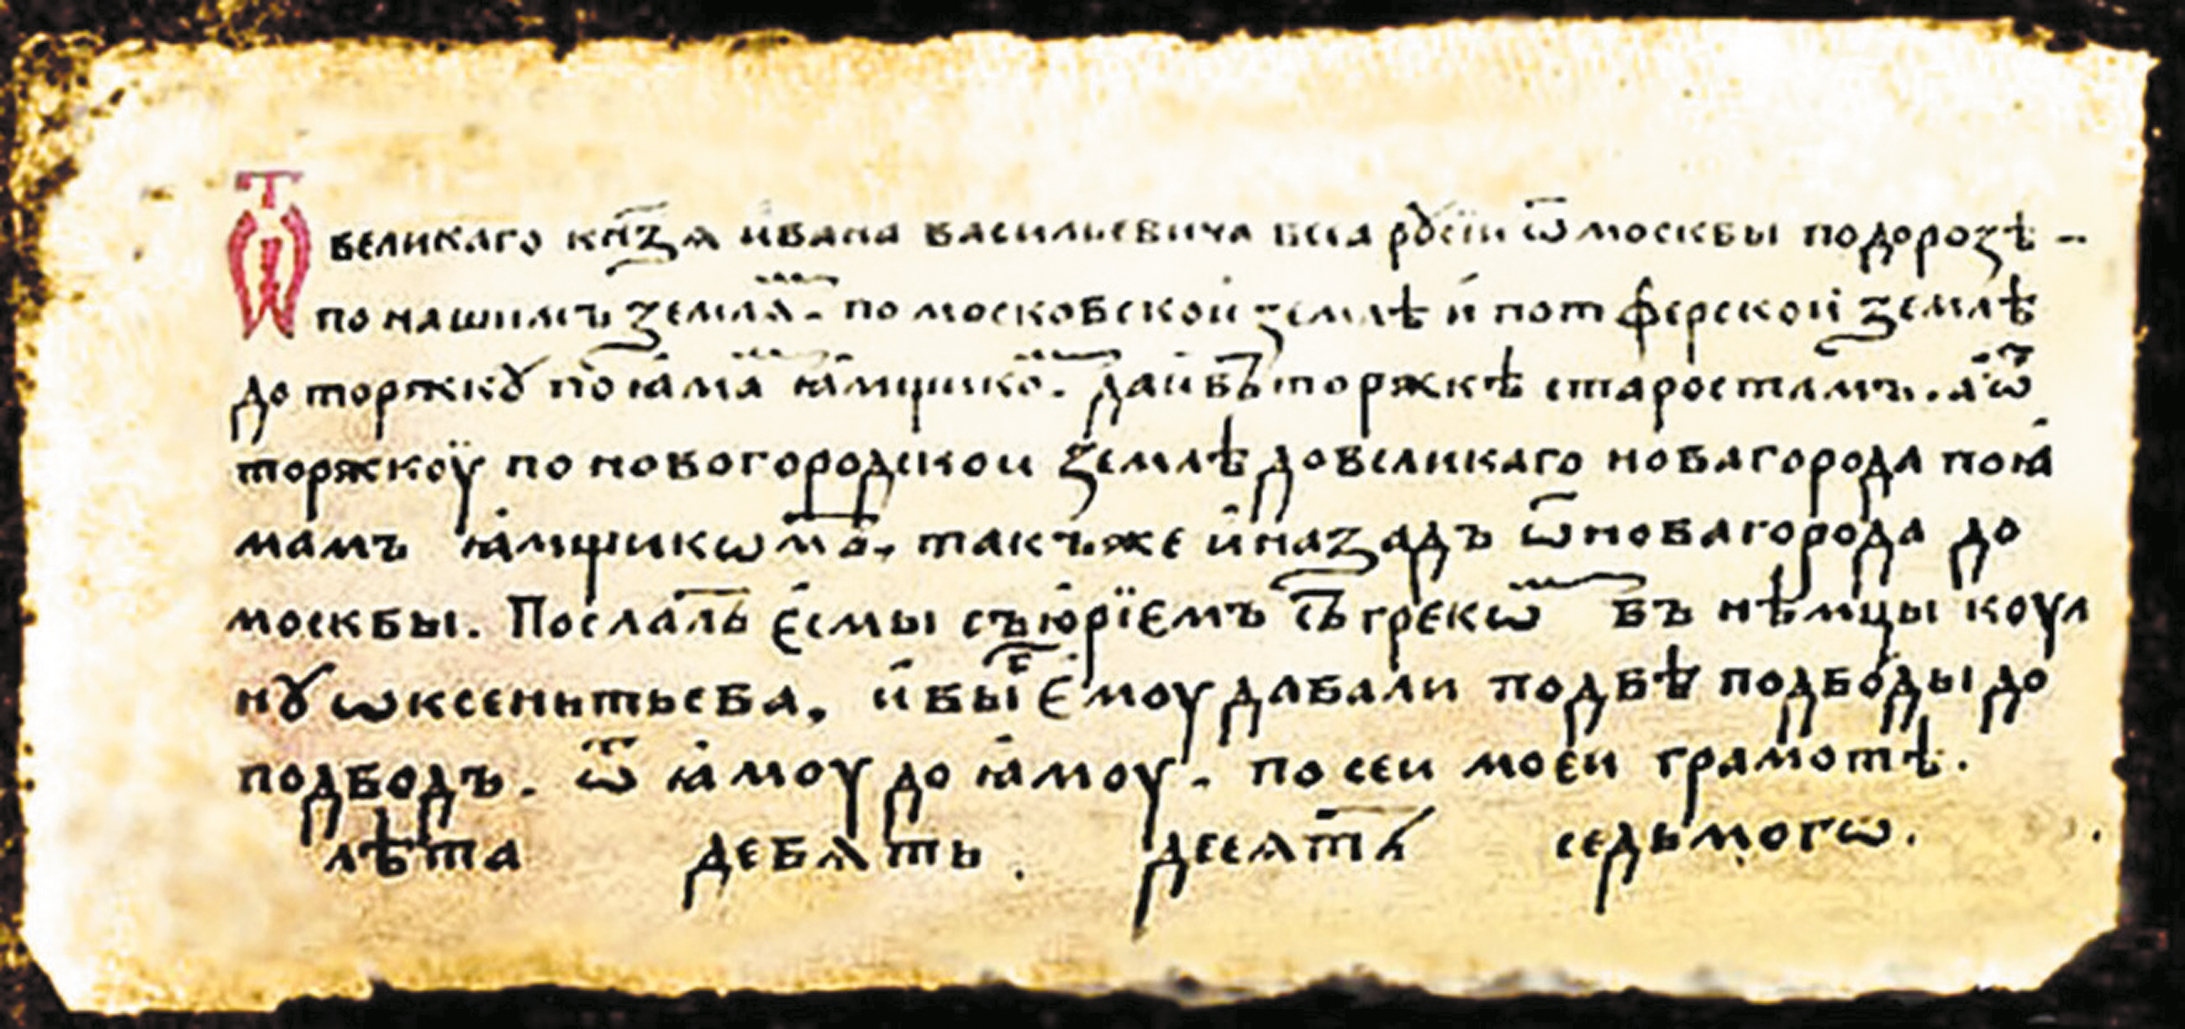 Ѿ великаго кнѧ҃зѧ ивана васильевича всеа рꙋсїи ѿ москвы подорозѣ –
по нашимъ землѧ . по московской землѣ и по тферской землѣ
до торжкꙋ по ꙗма ꙗмщико . дай въ торжкѣ старостамъ . а ѿ
торжкоу по новогородской землѣ до великаго новагорода по ꙗ
мамъ ꙗмщикѡмъ , такъ же и назадъ ѿ новагорода до
москвы . Послалъ есмы съ юрїемъ съ грекѡ въ нѣмцы коул
нꙋ ѡксеньтьева , и вы емоу давали подвѣ подводы до
подводъ . ѿ ꙗмоу до ꙗмоу . по сеи моеи грамотѣ .
лѣта девѧть . десѧтъ седьмогѡ .